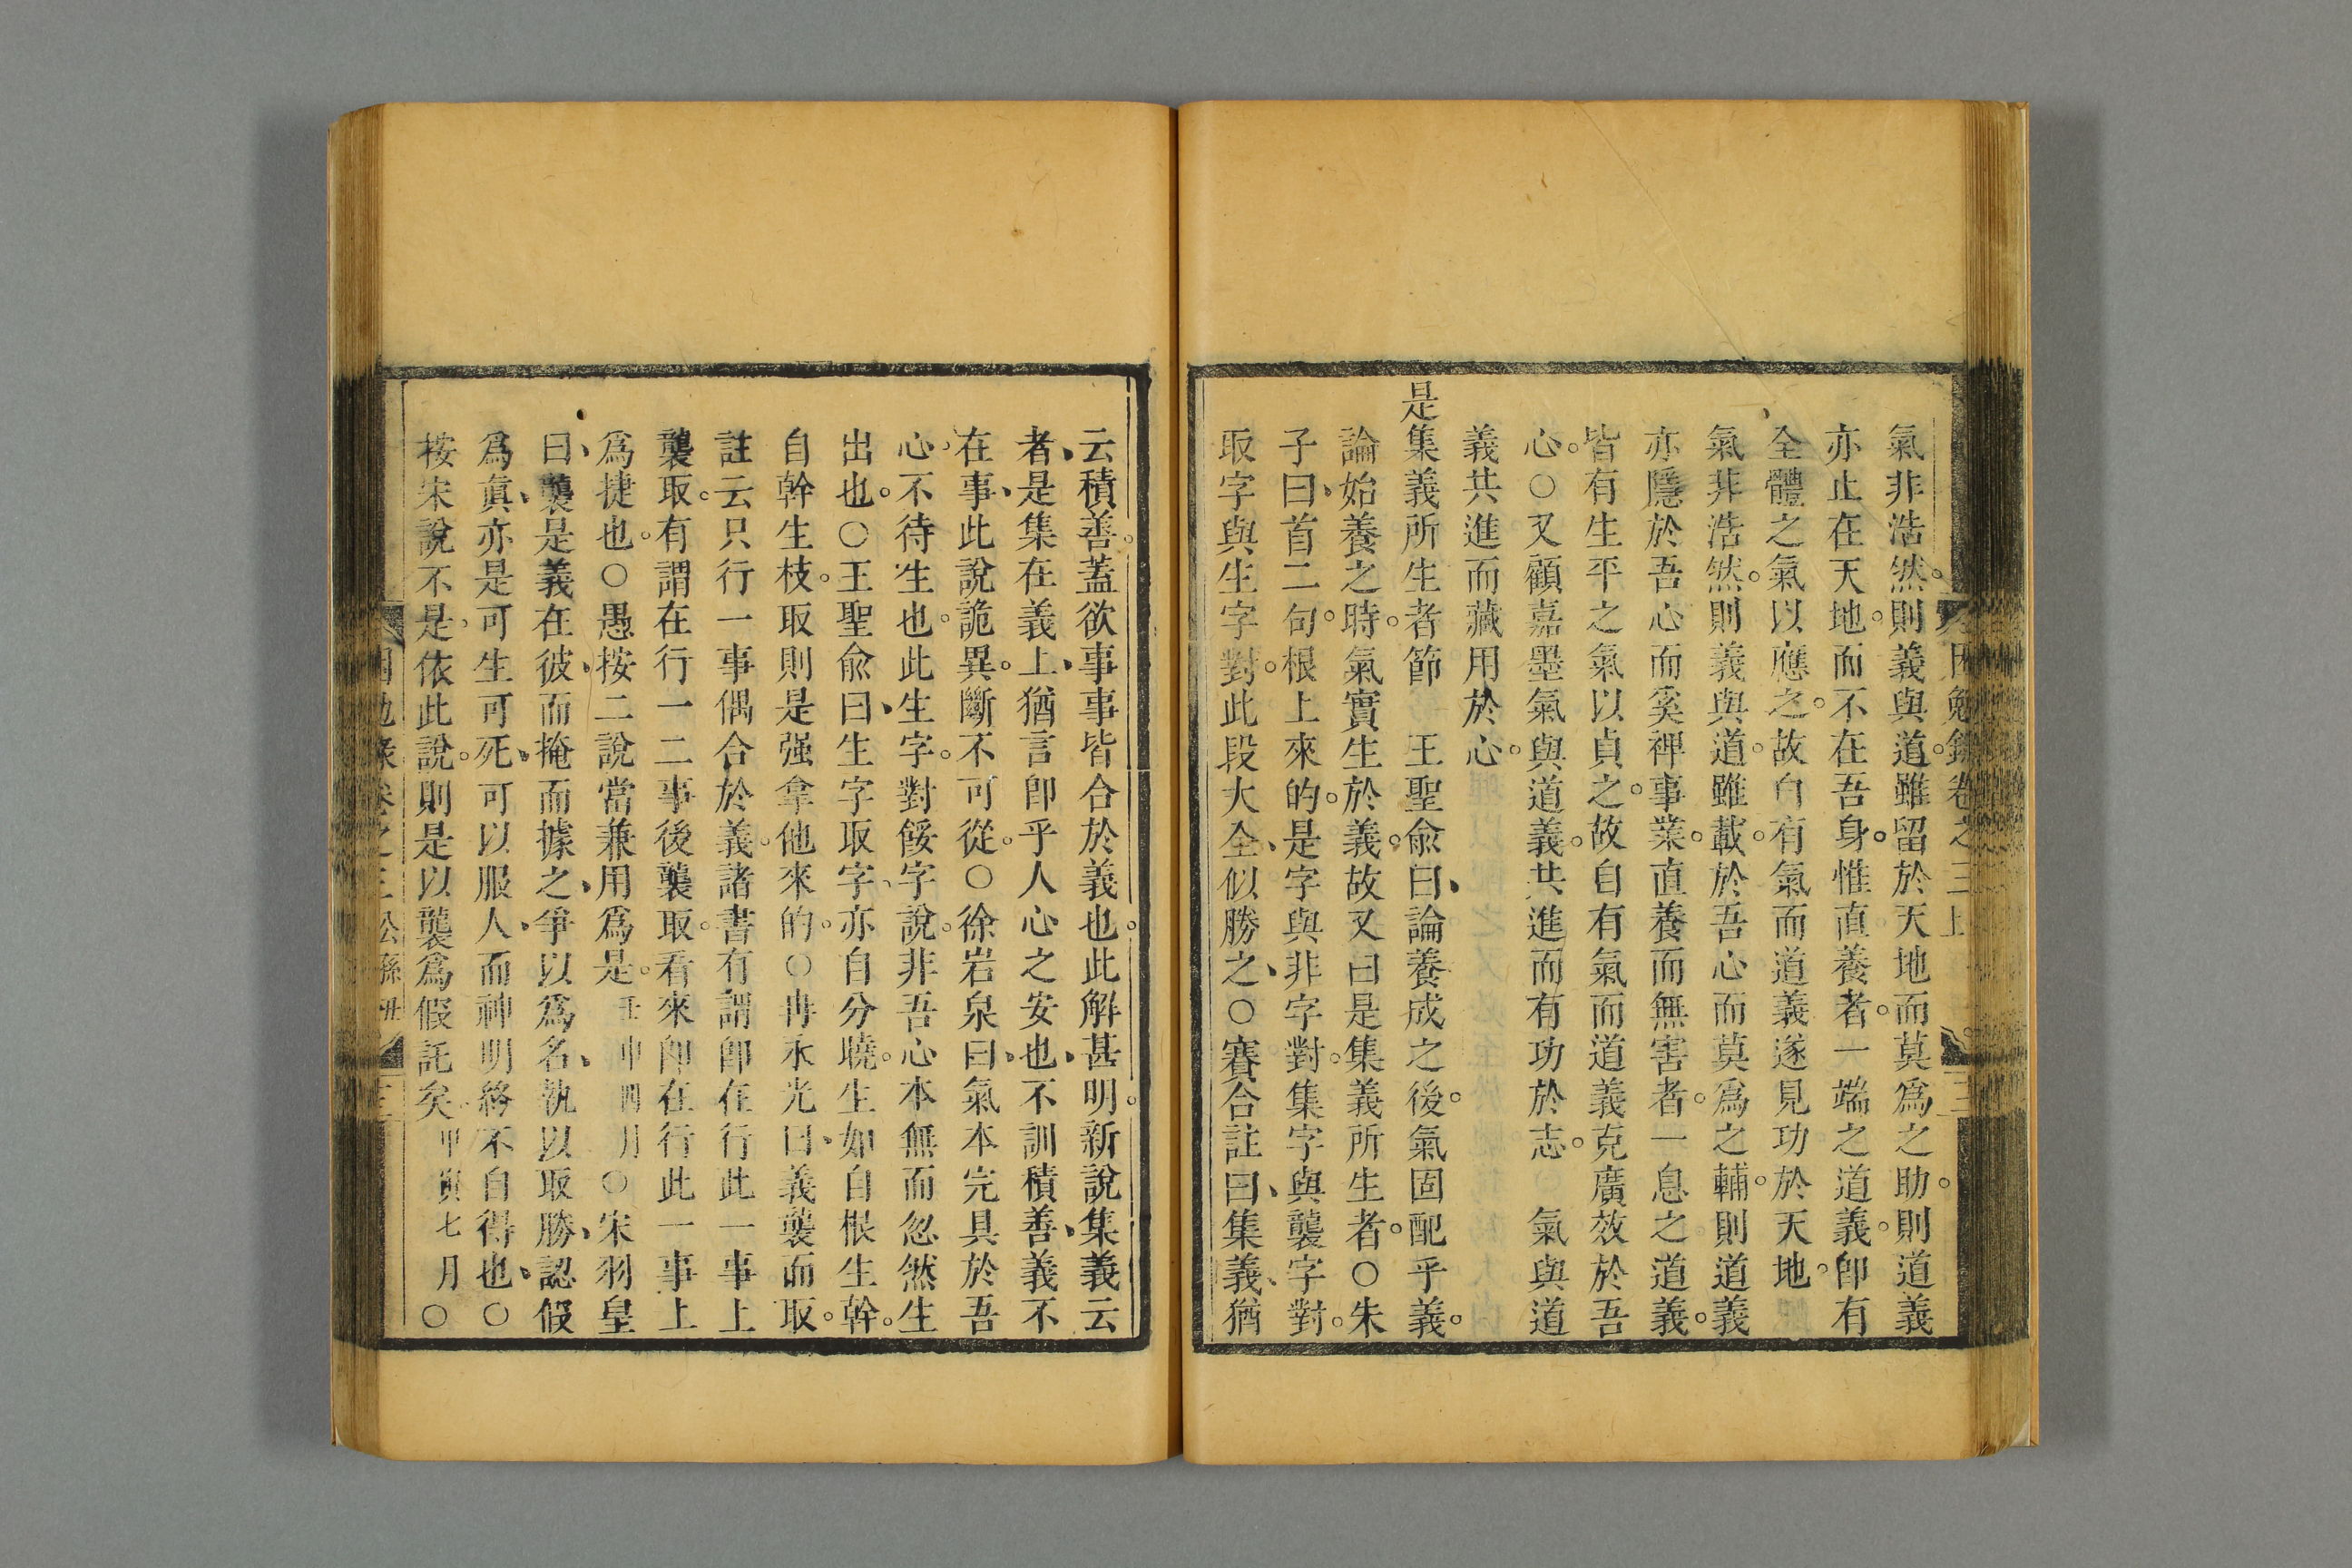 氣非浩然。則義與道。雖留於天地而莫爲之助。則道義
亦止在天地。而不在吾身。惟直養者。一端之道義。卽有
全體之氣以應之。故自有氣而道義遂見功於天地。
氣非浩然。則義與道。雖載。於吾心而莫爲之輔。則道義
亦隱於吾心而奚裨事業。直養而無害者。一息之道義。
皆有生平之氣以貞之。故自有氣而道義克廣效於吾
心。○又顧嘉墨氣與道義。共進而有功於志。○氣與道
義共進而藏用於心。
是集義所生者節 王聖俞曰、論養成之後。氣固配乎義。
論始養之時。氣實生於義。故又曰是集義所生者。○朱
子曰、首二句。根上來的。是字與非字對。集字與襲字對。
取字與生字對。此段大全、似勝之、○賽合註曰、集義、猶
云積善。蓋欲事事皆合於義也。此解甚明。新說集義云
者、是集在義上、猶言卽乎人心之安也、不訓積善、義不
在事、此說詭異。斷不可從。○徐岩泉曰、氣本完具於吾
心。不待生也。此生字。對餒字說。非吾心本無而忽然生
出也。○王聖俞曰、生字取字、亦自分曉。生如自根生幹。
自幹生枝。取則是强拿他來的。○冉永光曰、義襲而取。
註云只行一事偶合於義。諸書有謂卽在行此一事上
襲取。有謂在行一二事後襲取。看來卽在行此一事上
爲捷也。○愚按二說當兼用爲是。壬申四月○宋羽皇
曰、襲是義在彼、而掩而據之、爭以爲名、執以取勝、認假
爲眞、亦是可生可死、可以服人、而神明終不自得也、○
按宋說不是。依此說。則是以襲爲假託矣。甲寅七月○
困勉錄卷之三上